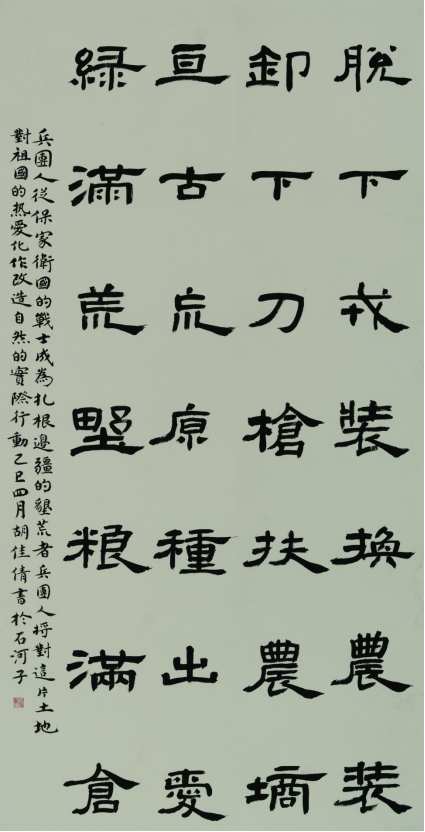 脫下戎裝換農装
卸下刀槍扶農墒
亘古荒原種出愛
緑滿荒野粮滿倉
兵團人從保家衛國的戰士成為扎根邊疆的墾荒者兵團人将對這片土地
對祖國的热愛化作改造自然的實際行動乙巳四月胡佳倩書於石河子